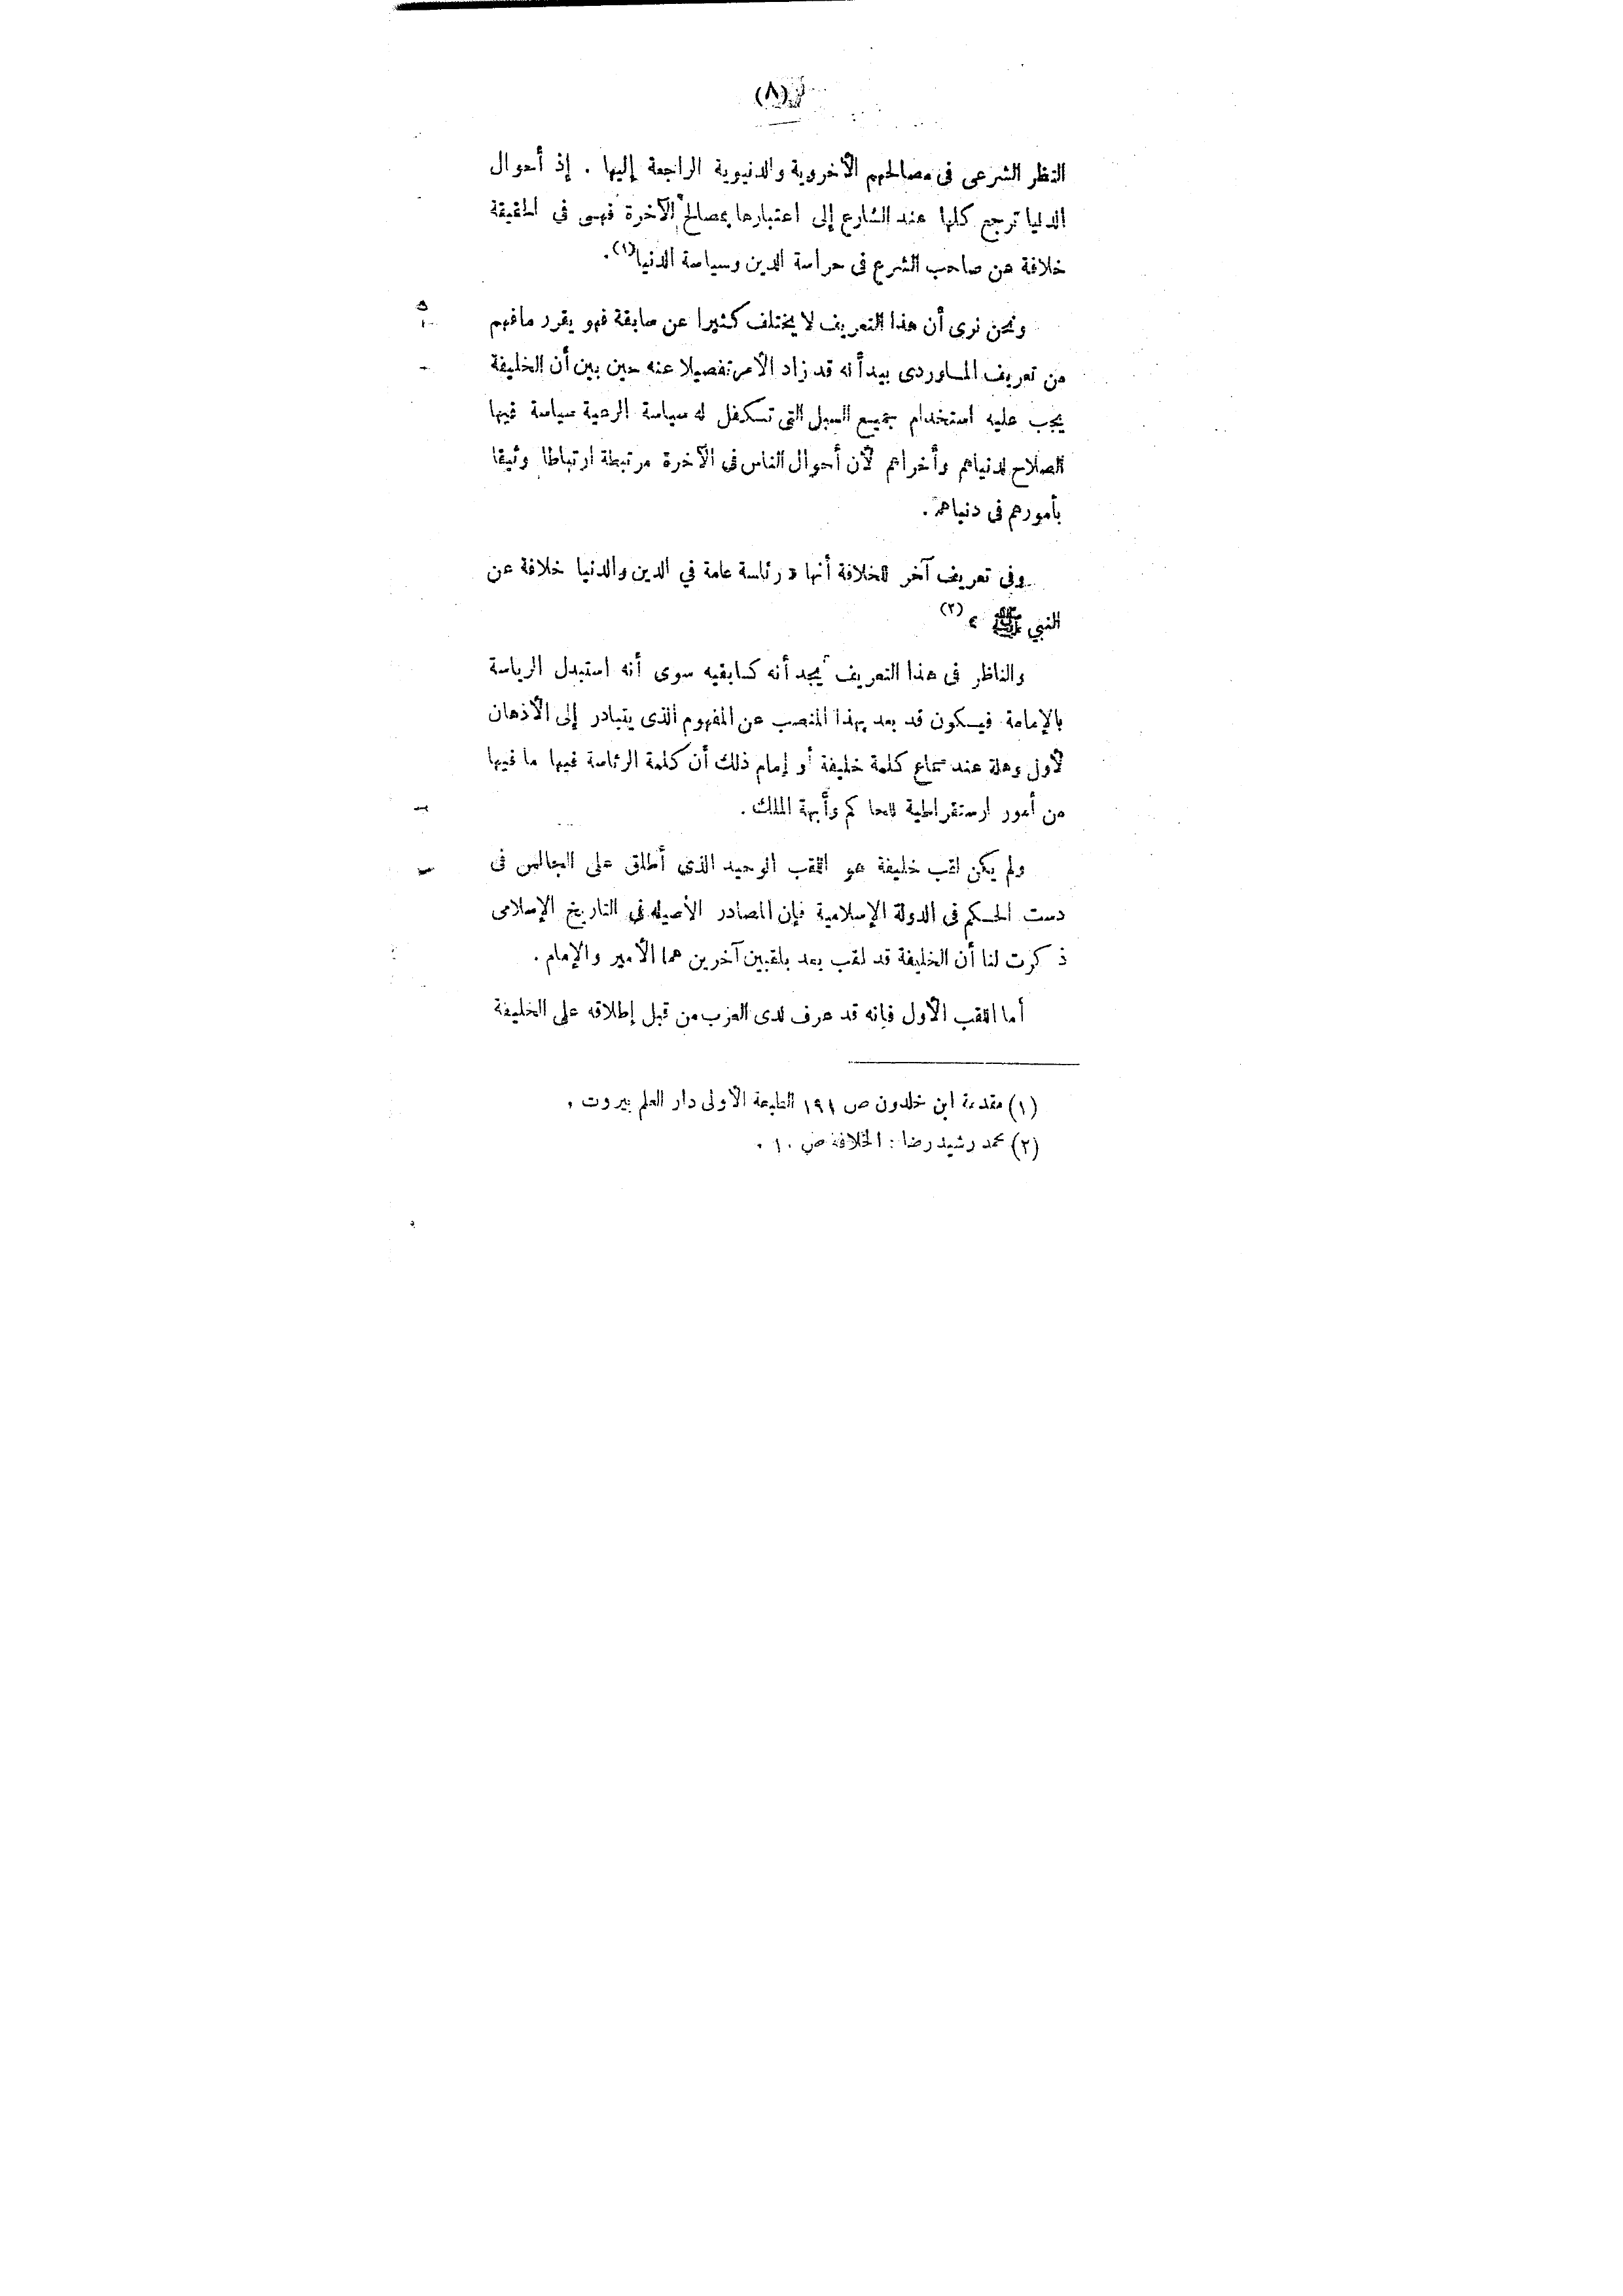 (٨)
النظر الشرعى فى مصالحهم الأخروية والدنيوية الراجعة إليها . إذ أحوال
الدنيا ترجع كلها عند الشارع إلى اعتبارها بمصالح الآخرة فهى في الحقيقة
خلافة عن صاحب الشرع فى حراسة الدين وسياسة الدنيا(١).
ونحن نرى أن هذا التعريف لا يختلف كثيرا عن سابقة فهو يقرر مافهم
من تعريف الماوردى بيد أنه قد زاد الأمر تفصيلا عنه حين بين أن الخليفة
يجب عليه استخدام جميع السبل التى تكفل له سياسة الرعية سياسة فيها
الصلاح لدنياهم وأخراهم لأن أحوال الناس فى الآخرة مرتبطة ارتباطا وثيقا
بأمورهم فى دنياهم .
وفى تعريف آخر للخلافة أنها « رئاسة عامة في الدين والدنيا خلافة عن
النبي ﷺ » (٢)
والناظر فى هذا التعريف يجد أنه كسابقيه سوى أنه استبدل الرياسة
بالإمامة فيكون قد بعد بهذا المنصب عن المفهوم الذى يتبادر إلى الأذهان
لأول وهلة عند سماع كلمة خليفة أو إمام ذلك أن كلمة الرئاسة فيها ما فيها
من أمور ارستقراطية للحاكم وأبهة الملك .
ولم يكن لقب خليفة هو اللقب الوحيد الذي أطلق على الجالس فى
دست الحكم فى الدولة الإسلامية فإن المصادر الأصيله فى التاريخ الإسلامى
ذكرت لنا أن الخليفة قد لقب بعد بلقبين آخرين هما الأمير والإمام .
أما اللقب الأول فإنه قد عرف لدى العرب من قبل إطلاقه على الخليفة
(١) مقدمة ابن خلدون ص ١٩١ الطبعة الأولى دار العلم بيروت .
(٢) محمد رشيد رضا : الخلافة ص ١٠ .